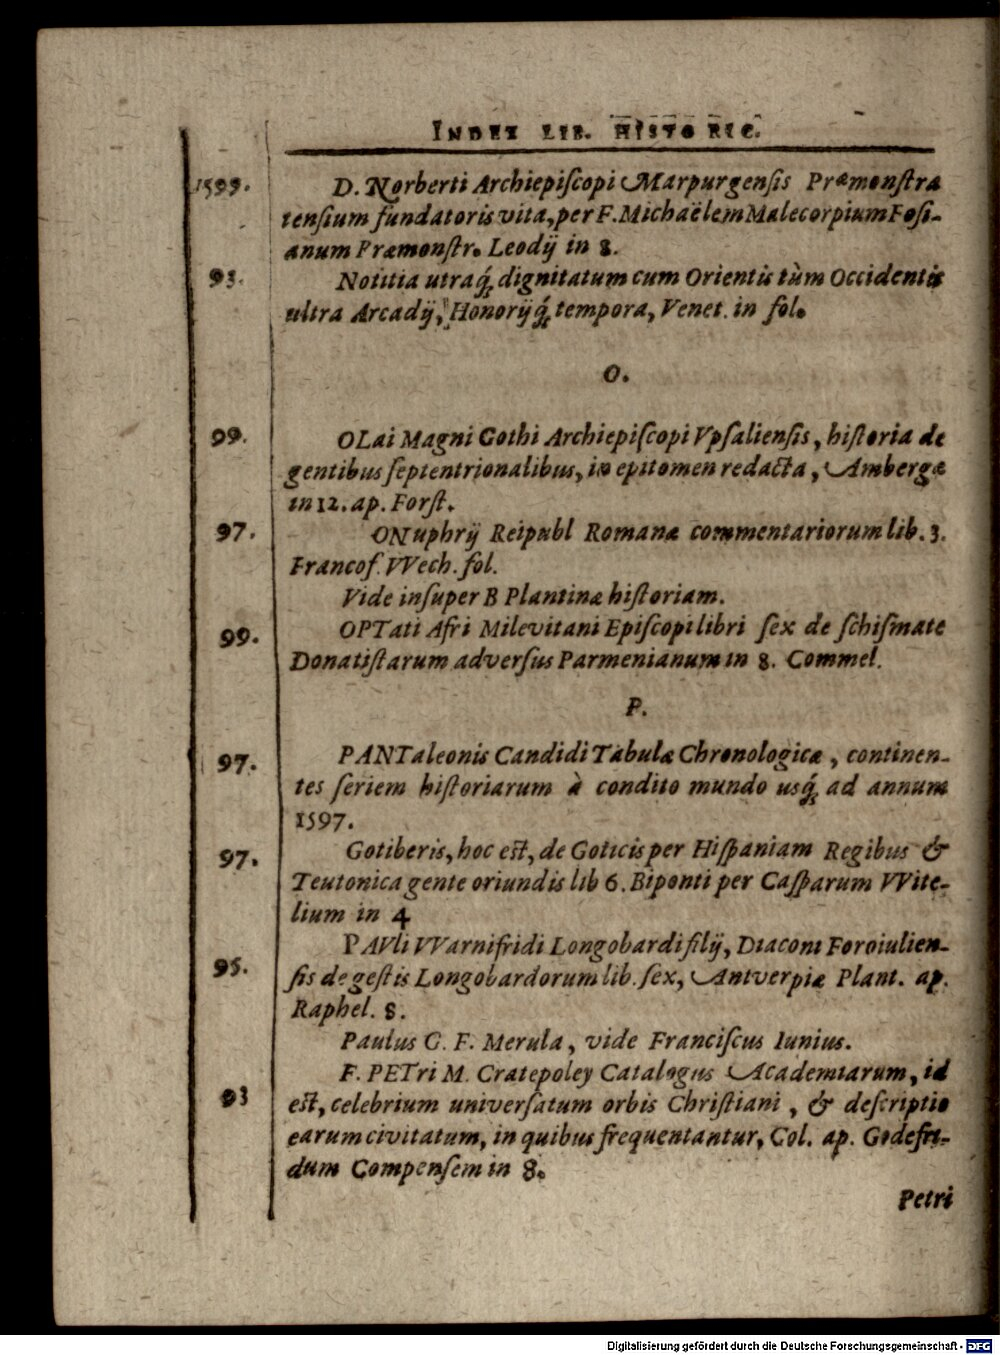 INDEX LIB. HISTORIC.
1599. D. Norberti Archiepiſcopi Marpurgenſis Præmonſtra
tenſium fundatoris vita, per F. Michaëlem Malecorpium Foſi-
anum Præmonſtr. Leodij in 8.
93. Notitia utraq́; dignitatum cum Orientis tùm Occidentis
ultra Arcadij, Honorijq́; tempora, Venet. in fol.
O.
99. OLai Magni Gothi Archiepiſcopi Vpſalienſis, hiſtoria de
gentibus ſeptentrionalibus, in epitomen redacta, Ambergæ
in 12. ap. Forſt.
97. ONuphrij Reipubl Romanæ commentariorum lib. 3.
Francof. VVech. fol.
Vide inſuper B Plantinæ hiſtoriam.
99. OPTati Afri Milevitani Epiſcopi libri ſex de ſchiſmate
Donatiſtarum adverſus Parmenianum in 8. Commel.
P.
97. PANTaleonis Candidi Tabulæ Chronologicæ, continen-
tes ſeriem hiſtoriarum à condito mundo usq́; ad annum
1597.
97. Gotiberis, hoc eſt, de Goticis per Hiſpaniam Regibus &
Teutonica gente oriundis lib 6. Biponti per Caſparum VVite-
lium in 4
95. PAVli VVarnifridi Longobardi filij, Diaconi Foroiulien-
ſis de geſtis Longobardorum lib. ſex, Antverpiæ Plant. ap.
Raphel. 8.
Paulus G. F. Merula, vide Franciſcus Iunius.
93 F. PETri M. Cratepoley Catalogus Academiarum, id
eſt, celebrium univerſatum orbis Chriſtiani, & deſcriptio
earum civitatum, in quibus frequentantur, Col. ap. Godefri-
dum Compenſem in 8.
Petri
Digitalisierung gefördert durch die Deutsche Forschungsgemeinschaft - DFG